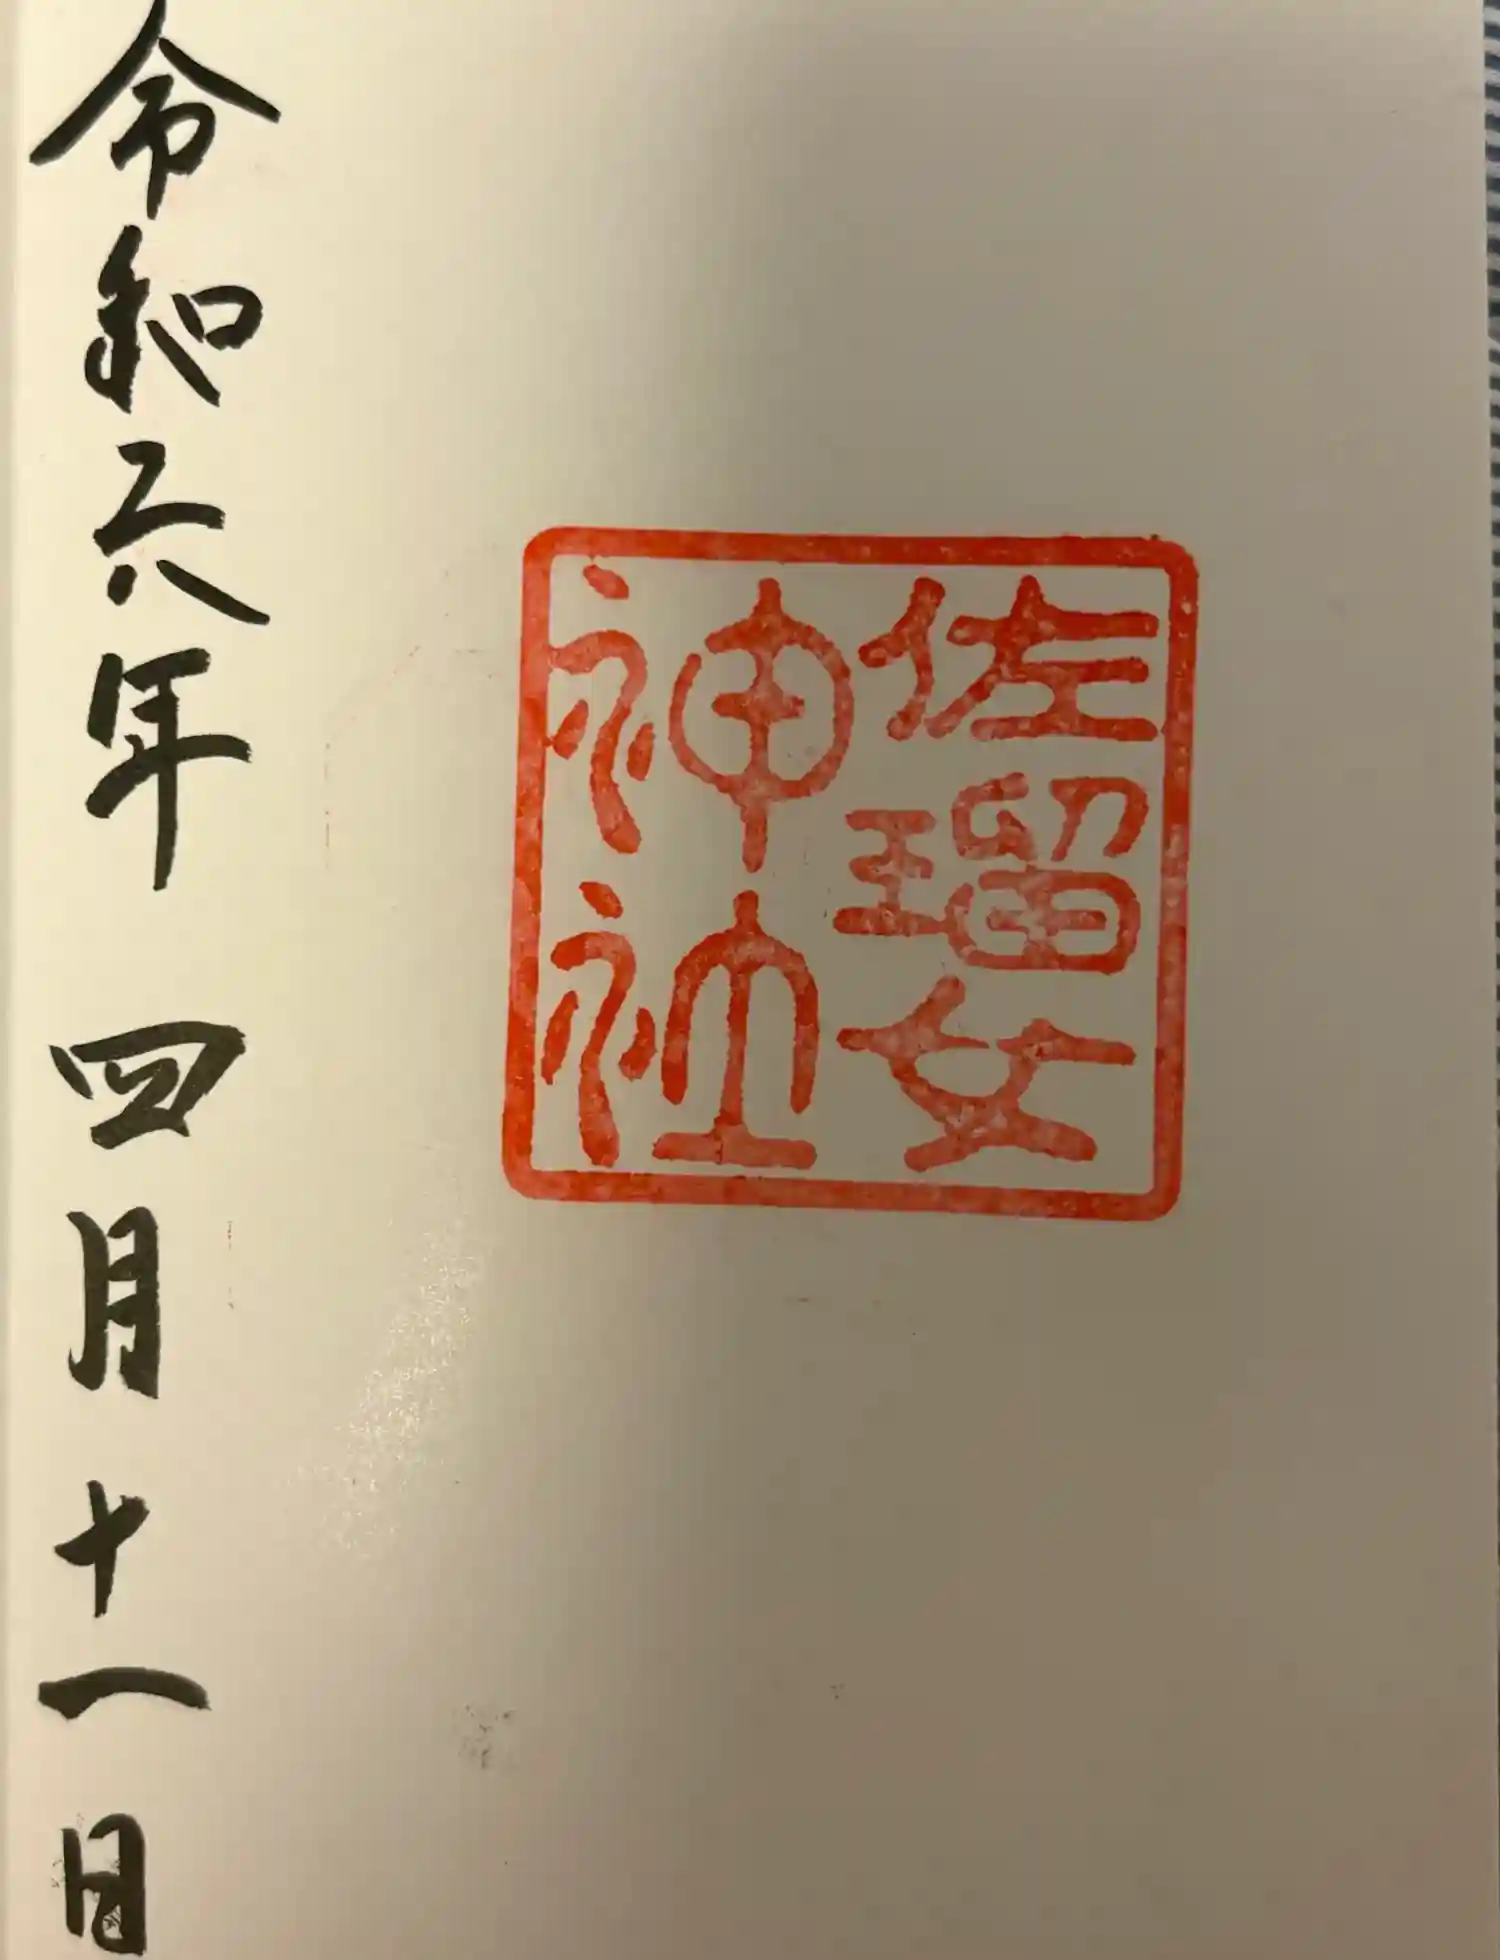 佐瑠女
神社
令和六年 四月十一日